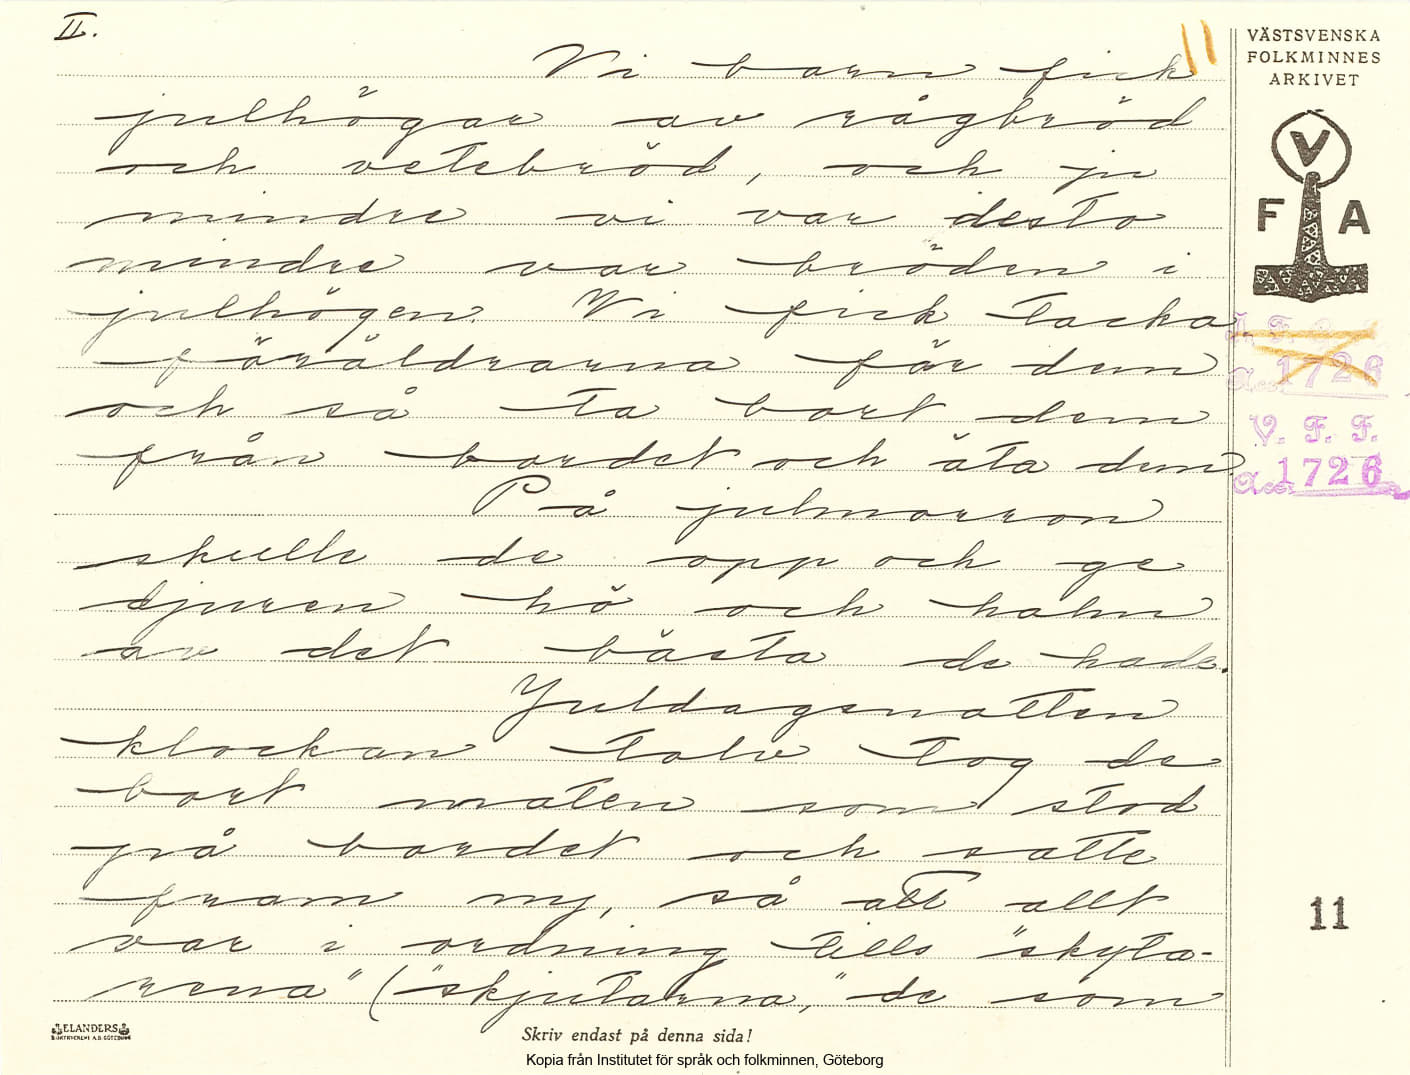 II.
11
Vi barn fick
julhögar av rågbröd
och vetebröd, och ju
mindre vi var desto
mindre var bröden i
julhögen. Vi fick tacka
föräldrarna för dem
och så ta bort dem
från bordet och äta dem.
På julmorron
skulle de opp och ge
djuren hö och halm
av det bästa de hade.
Juldagsnatten
klockan tolv tog de
bort maten som stod
på bordet och satte
fram ny, så att allt
var i ordning tills "skyta-
rena" ("skjutarna," de som
VÄSTSVENSKA
FOLKMINNES
ARKIVET
V
F A
1726
V. F. F.
Acc. 1726
11
ELANDERS
BOKTRYCKERI A.B. GÖTEBORG
Skriv endast på denna sida!
Kopia från Institutet för språk och folkminnen, Göteborg